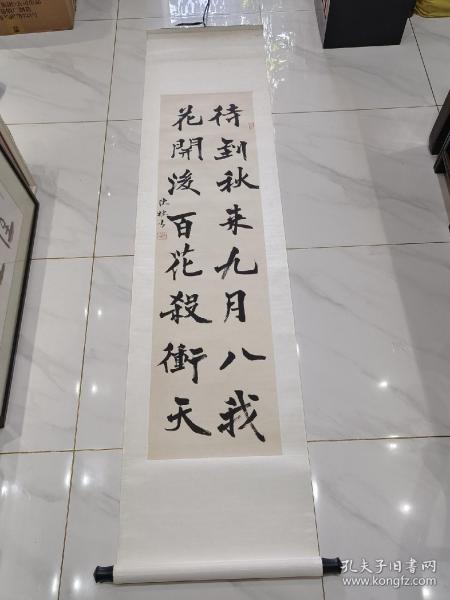 待到秋来九月八我
花開後百花殺衝天
孔夫子旧书网
www.kongfz.com